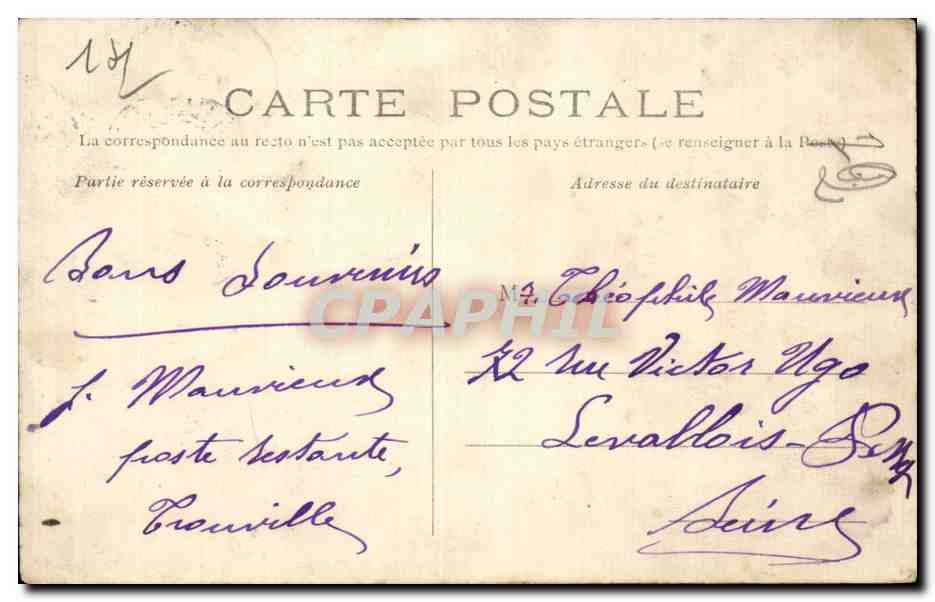 CARTE POSTALE
La correspondance au recto n'est pas acceptée par tous les pays étrangers (se renseigner à la Poste)
Partie réservée à la correspondance
Adresse du destinataire
Bons Souvenirs
J. Mauvieux
poste restante,
Trouville
Mr. Théophile Mauvieux
72 rue Victor Ugo
Levallois-Perret
Seine
CPAPHIL